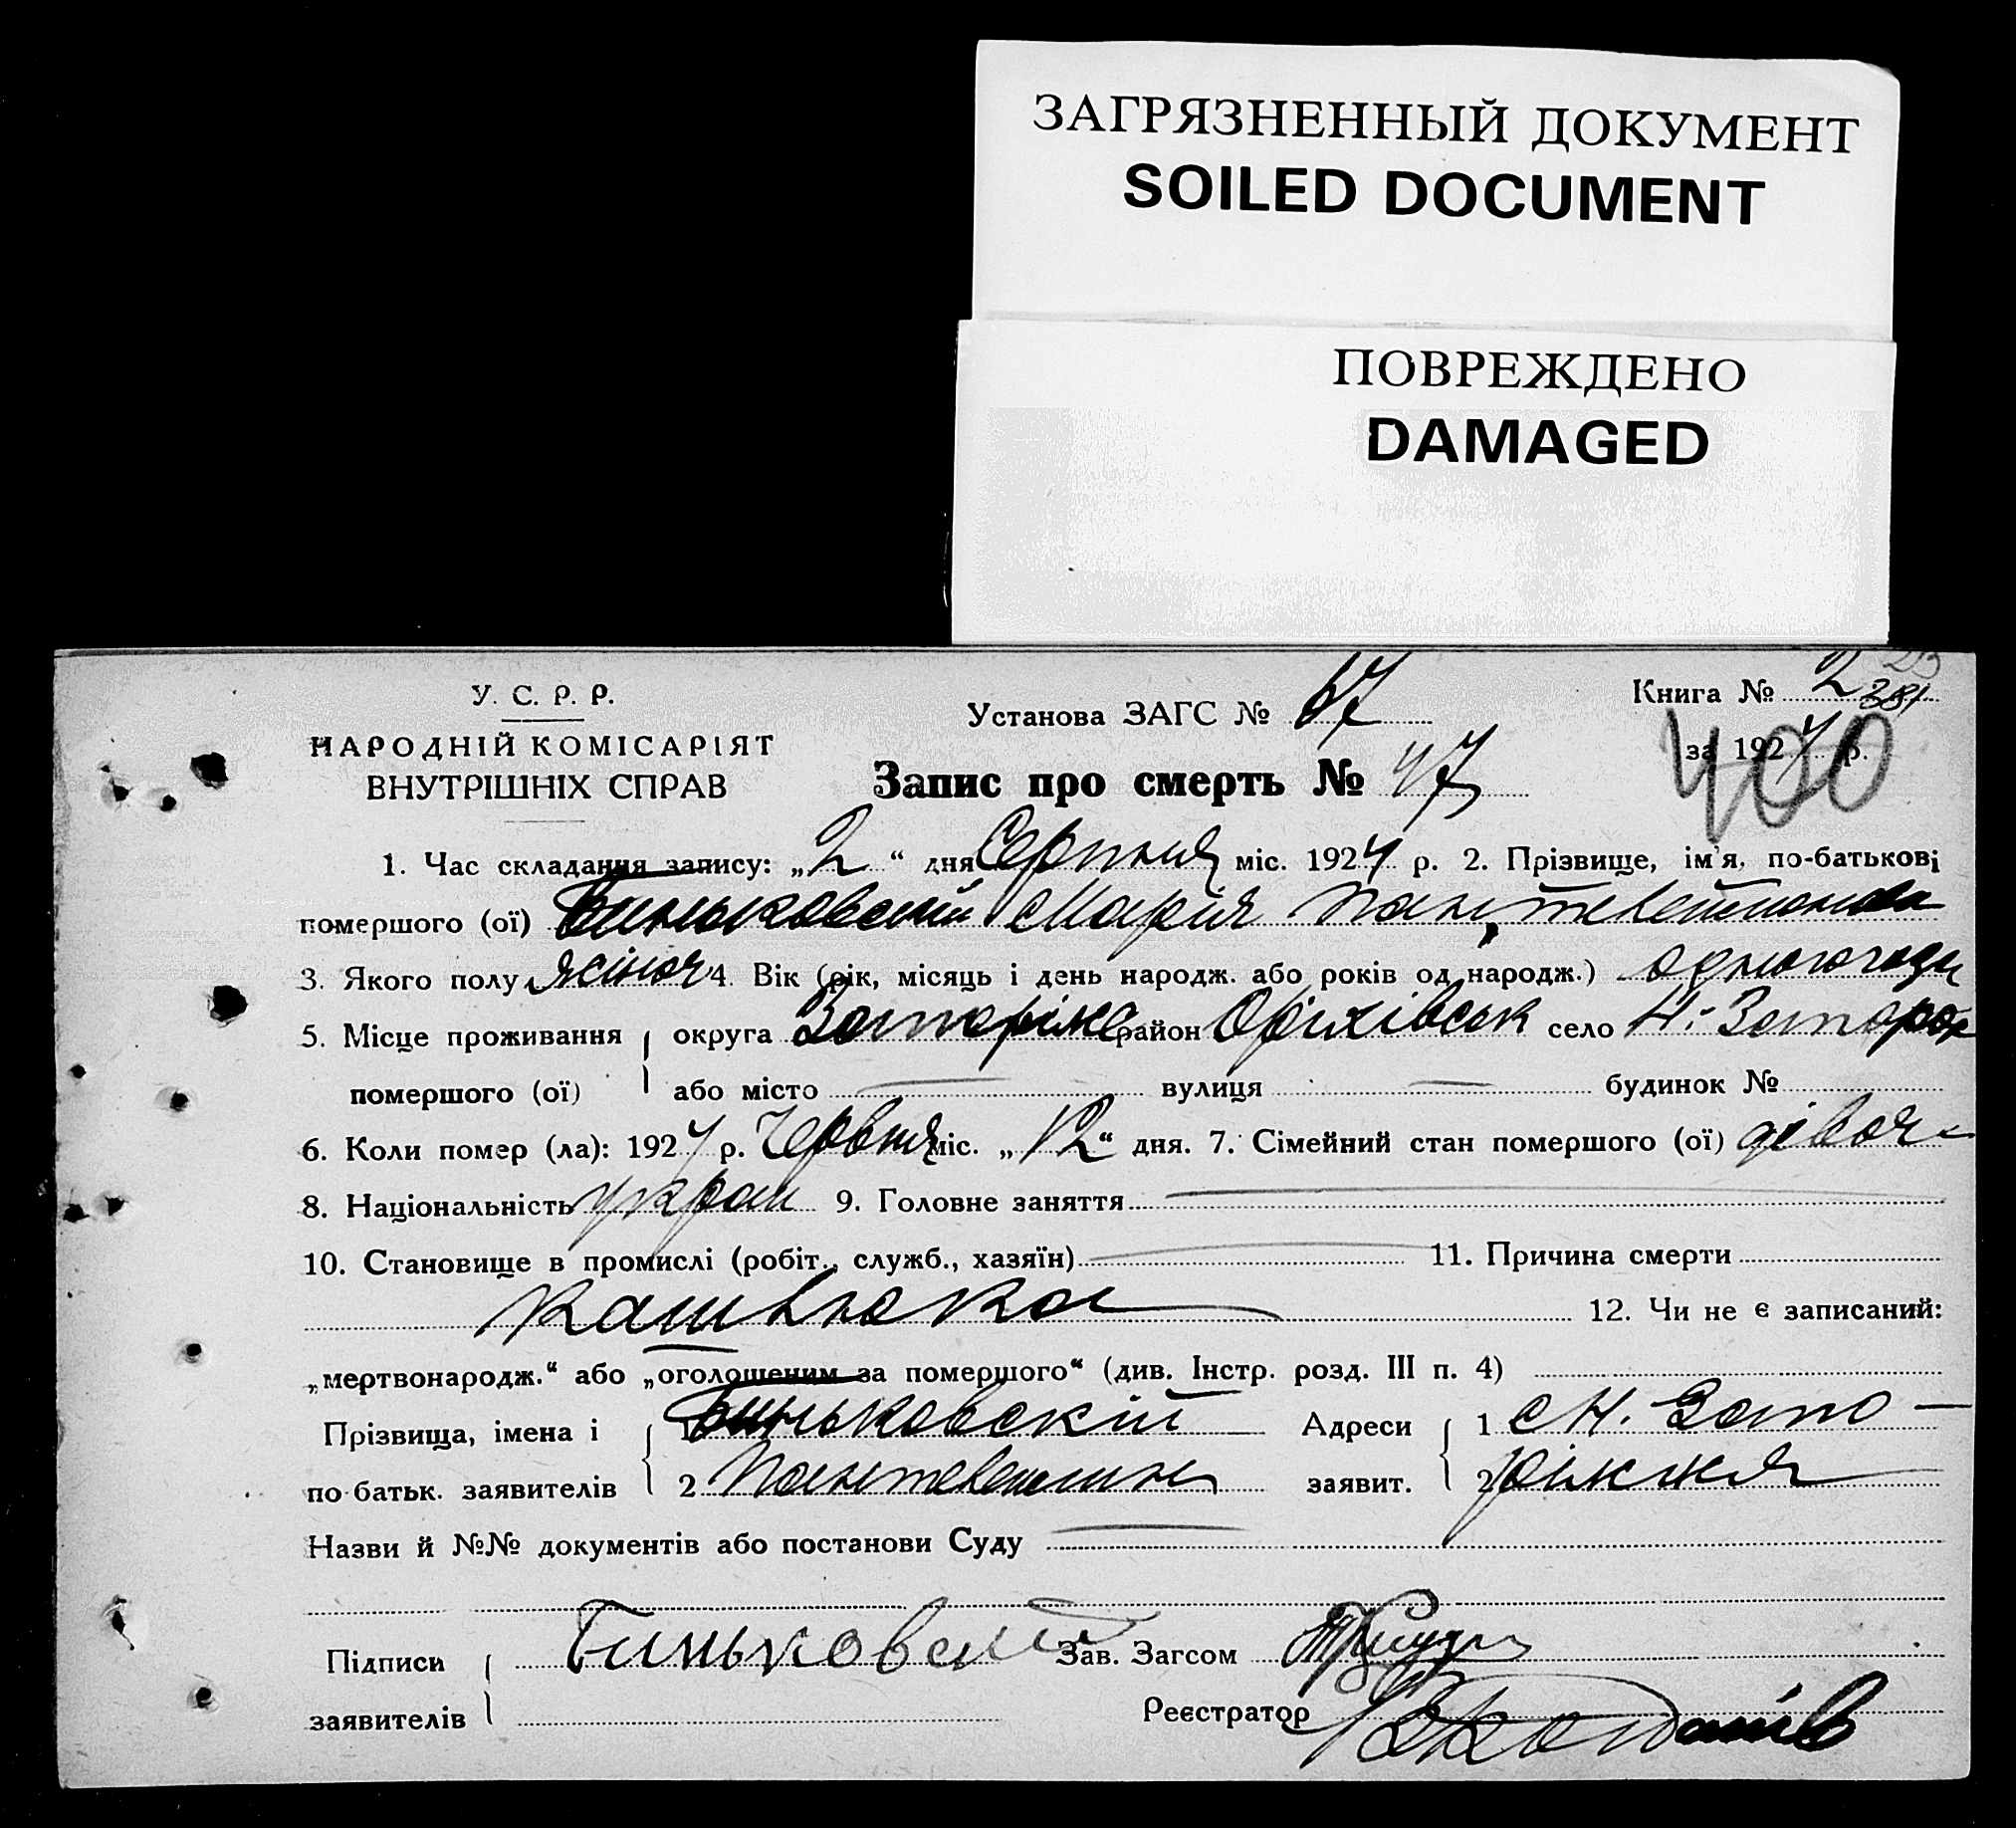 ЗАГРЯЗНЕННЫЙ ДОКУМЕНТ
SOILED DOCUMENT
ПОВРЕЖДЕНО
DAMAGED
У. С. Р. Р.
НАРОДНІЙ КОМІСАРІЯТ
ВНУТРІШНІХ СПРАВ
Установа ЗАГС № 67
Книга № 2 23
381
за 1924 р.
400
Запис про смерть № 47
1. Час складання запису: „2“ дня Серпня міс. 1924 р. 2. Прізвище, ім'я, по-батькові
помершого (ої) Биньковский Марія
3. Якого полу жіноч 4. Вік (рік, місяць і день народж. або років од народж.) одного году
5. Місце проживання округа Запоріже район Оріхівськ село Н.-Запорож
помершого (ої) або місто — вулиця — будинок №
6. Коли помер (ла): 1924 р. Червня міс. „12“ дня. 7. Сімейний стан помершого (ої) дівоч
8. Національність украі 9. Головне заняття —
10. Становище в промислі (робіт., служб., хазяїн) — 11. Причина смерти
кашлюка 12. Чи не є записаний:
„мертвонародж.“ або „оголошеним за помершого“ (див. Інстр. розд. III п. 4)
Прізвища, імена і 1 Биньковскій Адреси 1 с Н. Запо-
по батьк. заявителів 2 Пантелеимон заявит. 2 ріжжя
Назви й №№ документів або постанови Суду —
Підписи Биньковский Зав. Загсом
заявителів Реєстратор